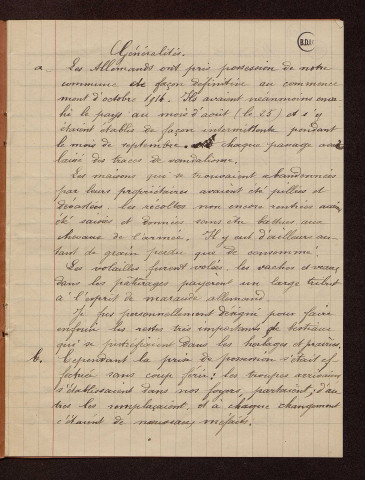 B.D.I.C
Généralités.
a. Les Allemands ont pris possession de notre
commune de façon définitive au commence
ment d'octobre 1914. Ils avaient néanmoins enva
hi le pays au mois d'août (le 25) et s'y
étaient établis de façon intermittente pendant
le mois de septembre. chaque passage avait
laissé des traces de vandalisme.
Les maisons qui se trouvaient abandonnées
par leurs propriétaires avaient été pillées et
dévastées. les récoltes non encore rentrées avaient
été saisies et données sans être battues aux
chevaux de l'armée. Il y eut d'ailleurs au-
tant de grain perdu que de consommé.
Les volailles furent volées. les vaches et veaux
dans les pâturages payèrent un large tribut
à l'esprit de maraude allemand.
Je fus personnellement désigné pour faire
enfouir les restes très importants de bestiaux
qui se putréfiaient dans les herbages et prairies.
b. Cependant la prise de possession s'était ef
fectuée sans coup férir: les troupes arrivaient
s'établissaient dans nos foyers, partaient; d'au
tres les remplaçaient, et à chaque changement
c'étaient de nouveaux méfaits.